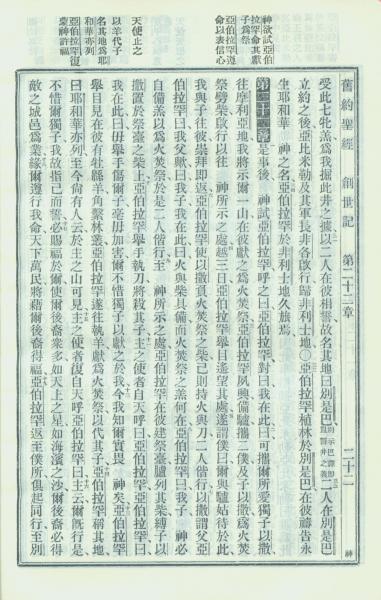 舊約聖經 創世記 第二十二章 二十二 神
受此七牝羔爲我掘此井之據以二人在彼相誓故名其地曰別是巴二人在別是巴
立約之後亞比米勒及其軍長非各啟行歸非利士地○亞伯拉罕植林於別是巴在彼禱告永
生耶和華 神之名亞伯拉罕於非利士地久旅焉
第二十二章是事後 神試亞伯拉罕呼之曰亞伯拉罕對曰我在此曰可攜爾所愛獨子以撒
往摩利亞地我將示爾一山在彼獻之爲火焚祭亞伯拉罕夙興備驢攜二僕及子以撒爲火焚
祭劈柴啟行以往 神所示之處越三日亞伯拉罕舉目遙望其處遂謂僕曰爾與驢姑待於此
我與子往彼崇拜即返亞伯拉罕使以撒負火焚祭之柴己則持火與刀二人偕行以撒謂父亞
伯拉罕曰我父歟曰我子我在此曰火與柴具備而火焚祭之羔何在亞伯拉罕曰我子 神必
自備羔以爲火焚祭於是二人偕行至 神所示之處亞伯拉罕在彼建祭臺臚列其柴縛子以
撒置於祭臺之柴上亞伯拉罕舉手執刀將殺其子主之使者自天呼曰亞伯拉罕亞伯拉罕曰
我在此曰毋舉手傷爾子毫毋加害爾不惜獨子以獻之於我今我知爾實畏 神矣亞伯拉罕
舉目見在彼有牡緜羊角繫林叢亞伯拉罕遂往執羊獻爲火焚祭以代其子亞伯拉罕稱其地
曰耶和華亦列至今尚有人云於主之山可見主之使者復自天呼亞伯拉罕曰主云爾既行是
不惜爾獨子我故指己而誓必賜福於爾使爾後裔衆多如天上之星如海濱之沙爾後裔必得
敵之城邑爲業緣爾遵行我命天下萬民將藉爾後裔得福亞伯拉罕返至僕所俱起同行至別
神欲試亞伯
拉罕命其獻
子爲祭
亞伯拉罕遵
命以表信心
天使止之
以羊代子
名其地爲耶
和華亦列
亞伯拉罕復
蒙神許福